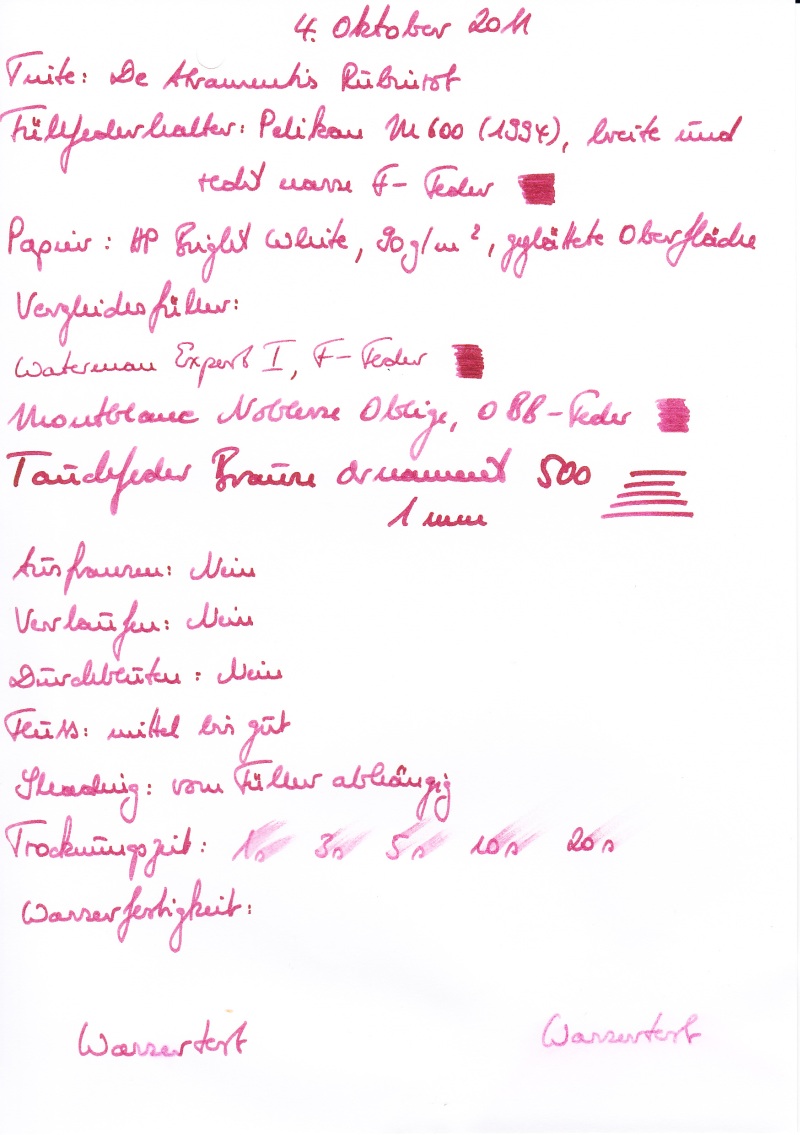 4. Oktober 2011
Tinte: De Atramentis Rubinrot
Füllfederhalter: Pelikan M 600 (1994), breite und
recht nasse F-Feder
Papier: HP Bright White, 90g/m², geglättete Oberfläche
Vergleichsfüller:
Waterman Expert I, F-Feder
Montblanc Noblesse Oblige, OBB-Feder
Tauchfeder Brause Ornament 500
1 mm
Ausfransen: Nein
Verlaufen: Nein
Durchbluten: Nein
Fluss: mittel bis gut
Shading: vom Füller abhängig
Trocknungszeit: 1s 3s 5s 10s 20s
Wasserfestigkeit:
Wassertest Wassertest